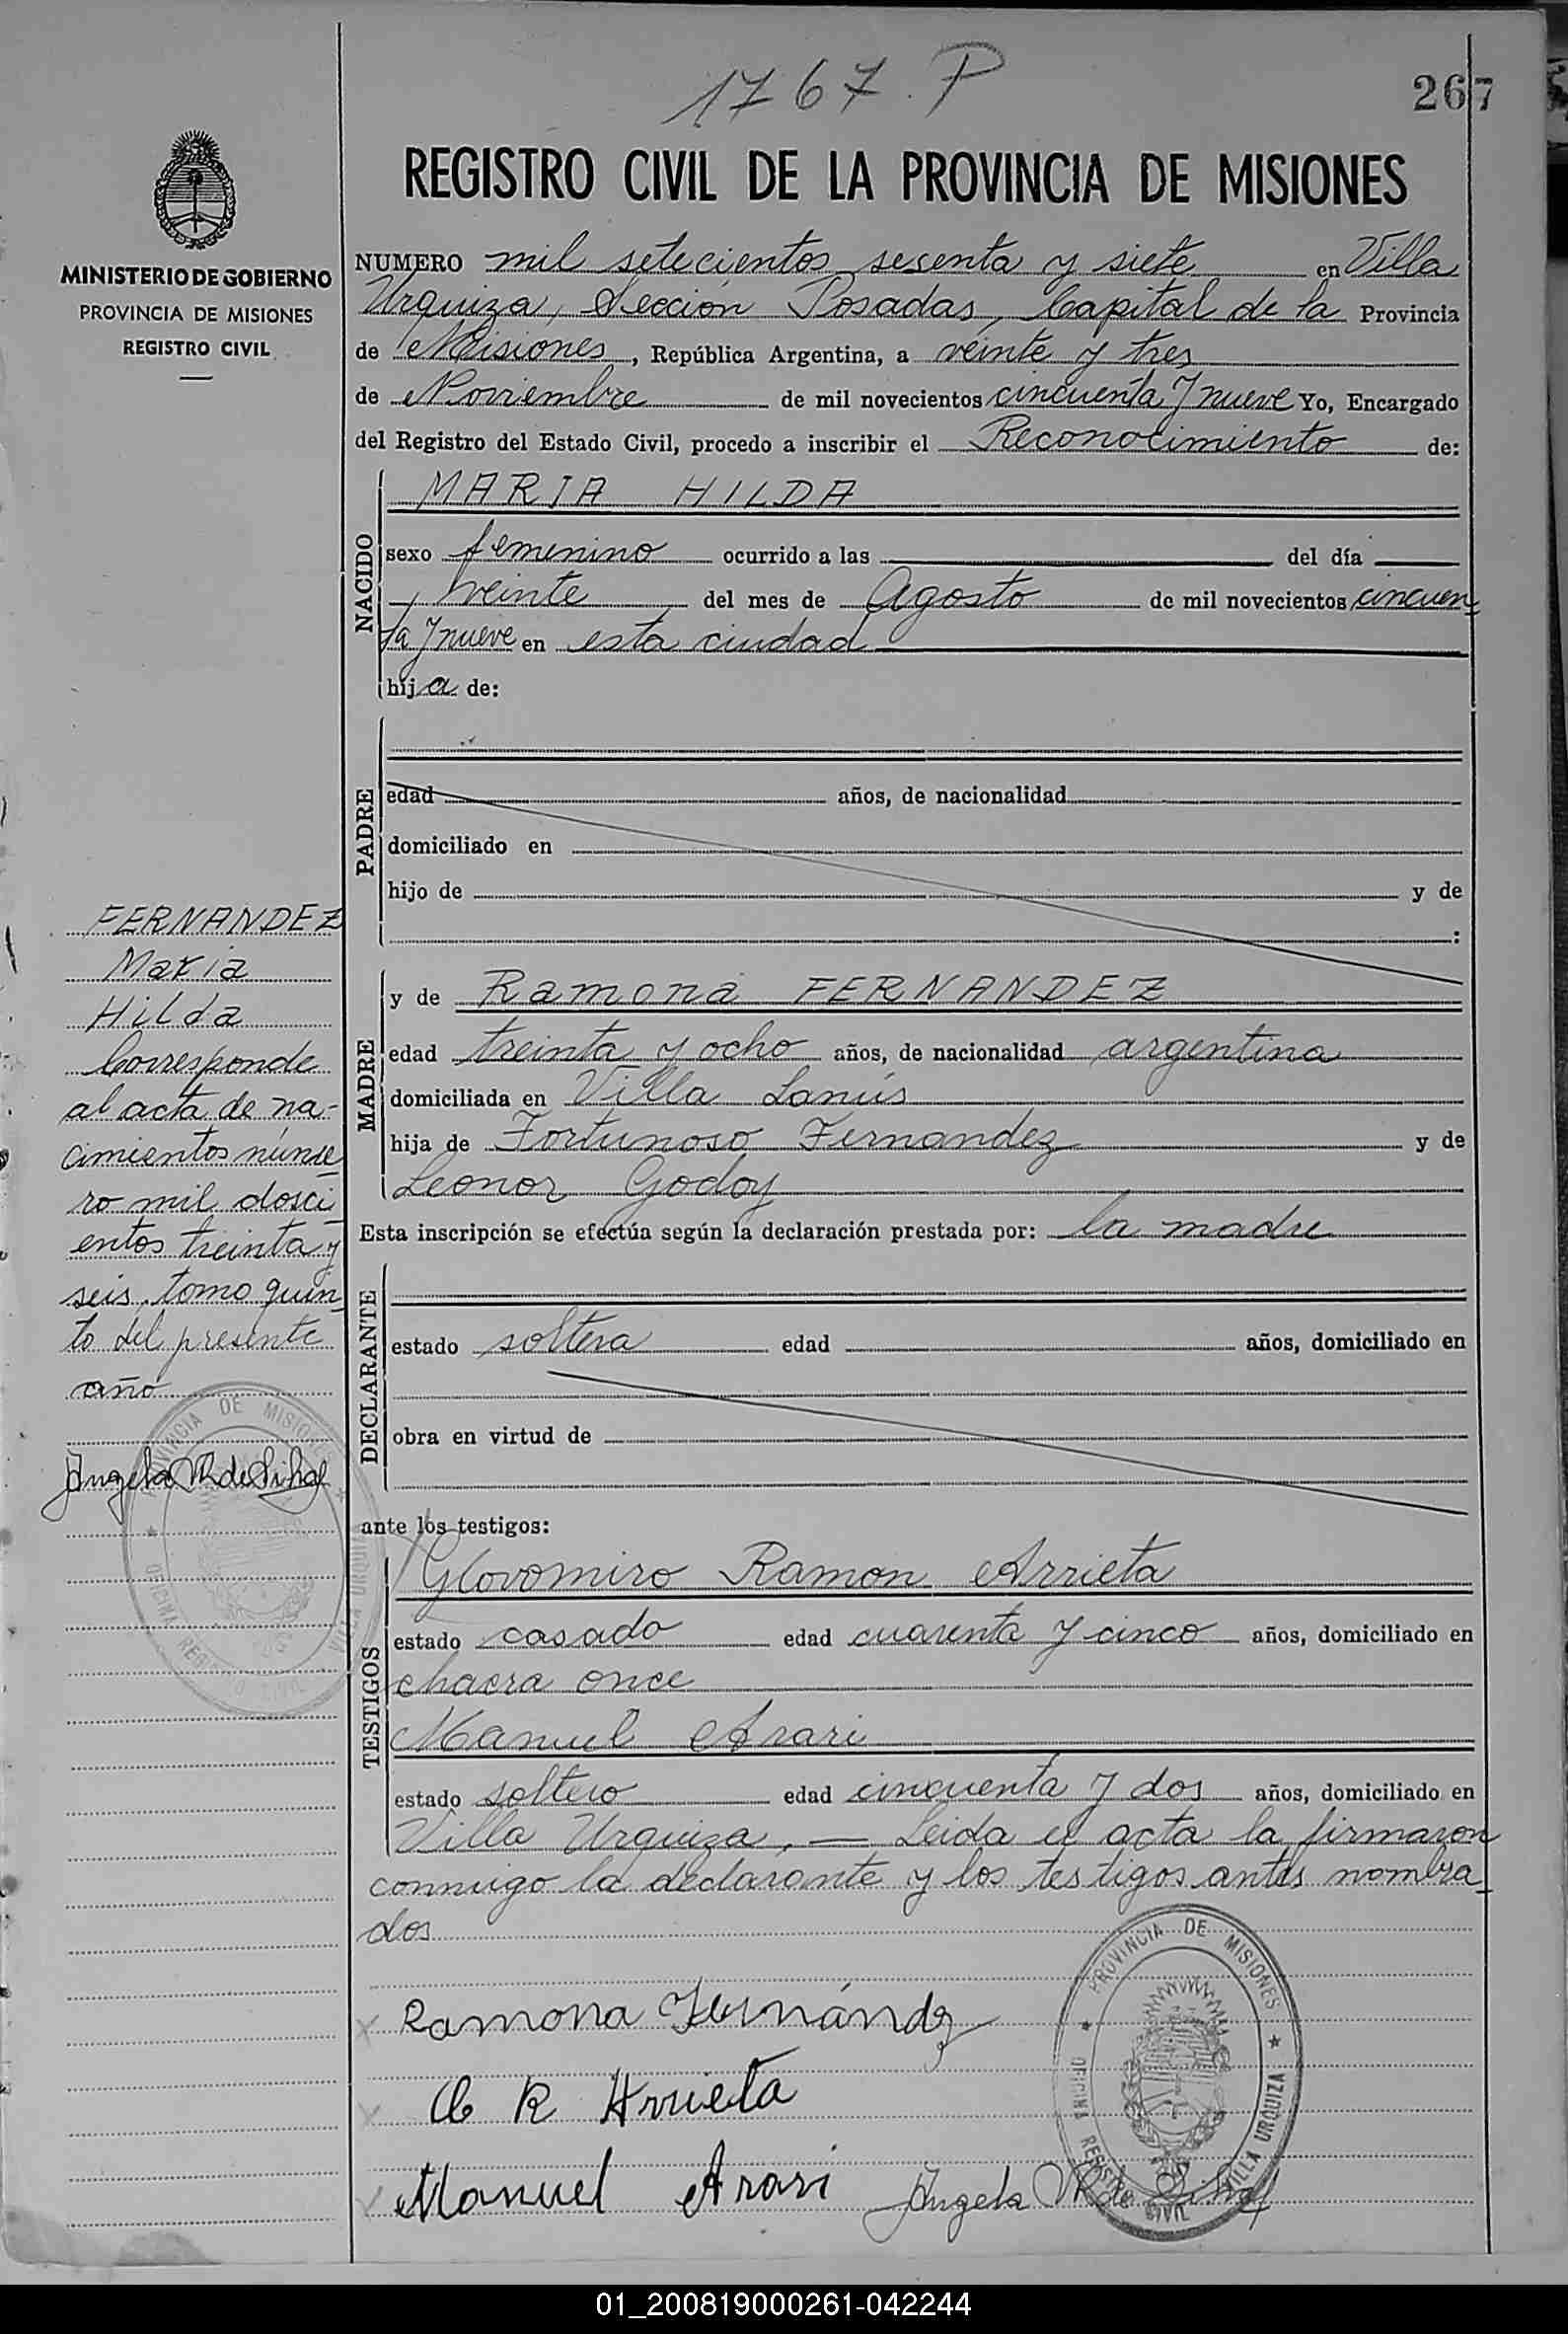 1767. P
267
REGISTRO CIVIL DE LA PROVINCIA DE MISIONES
MINISTERIO DE GOBIERNO
PROVINCIA DE MISIONES
REGISTRO CIVIL
NUMERO mil setecientos sesenta y siete en Villa
Urquiza, Sección Posadas, Capital de la Provincia
de Misiones, República Argentina, a veinte y tres
de Noviembre de mil novecientos cincuenta y nueve Yo, Encargado
del Registro del Estado Civil, procedo a inscribir el Reconocimiento de:
NACIDO
MARIA HILDA
sexo femenino ocurrido a las del día
veinte del mes de Agosto de mil novecientos cincuen-
ta y nueve en esta ciudad
hija de:
PADRE
edad años, de nacionalidad
domiciliado en
hijo de y de
:
MADRE
y de Ramona FERNANDEZ
edad treinta y ocho años, de nacionalidad argentina
domiciliada en Villa Lanús
hija de Fortunoso Fernandez y de
Leonor Godoy
Esta inscripción se efectúa según la declaración prestada por: la madre
DECLARANTE
estado soltera edad años, domiciliado en
obra en virtud de
ante los testigos:
TESTIGOS
Glovomiro Ramon Arrieta
estado casado edad cuarenta y cinco años, domiciliado en
chacra once
Manuel Arari
estado soltero edad cincuenta y dos años, domiciliado en
Villa Urquiza. — Leida el acta la firmaron
conmigo la declarante y los testigos antes nombra-
dos
Ramona Fernández
R Arrieta
Manuel Arari
Angela R de
PROVINCIA DE MISIONES
OFICINA REGISTRO CIVIL VILLA URQUIZA
FERNANDEZ
Maria
Hilda
Corresponde
al acta de na-
cimientos núme-
ro mil dosci-
entos treinta y
seis, tomo quin-
to del presente
año
Angela R de
PROVINCIA DE MISIONES
OFICINA REGISTRO CIVIL VILLA URQUIZA
01_200819000261-042244